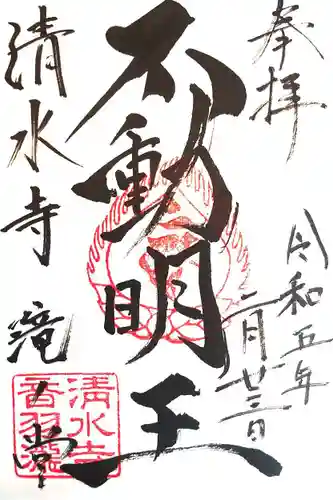 奉拝
令和五年
二月廿三日
不動明王
清水寺 滝ノ堂
清水寺
音羽瀧